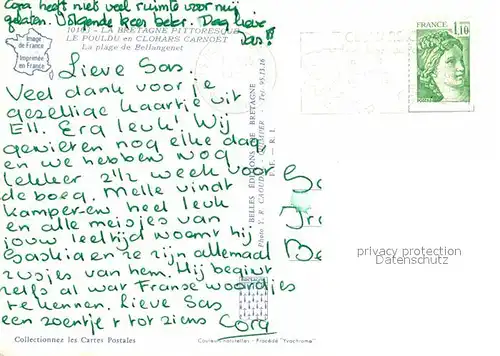 Cora heeft niet veel ruimte voor mij
gelaten. Volgende keer beter. Dag lieve
Sas!
Image
de France
Imprimée
en France
10107 - LA BRETAGNE PITTORESQUE
LE POULDU en CLOHARS CARNOET
La plage de Bellangenet
FRANCE
1,10
Lieve Sas.
Veel dank voor je
gezellige kaartje uit
Ell. Erg leuk! Wij
genieten nog elke dag
en we hebben nog
lekker 2½ week voor
de boeg. Melle vindt
kamperen heel leuk
en alle meisjes van
jouw leeftijd noemt hij
Saskia en ze zijn allemaal
zusjes van hem. Hij begint
zelfs al wat Franse woordjes
te kennen. Lieve Sas
een zoentje & tot ziens Cora
BELLES ÉDITIONS DE BRETAGNE
Photo Y. R. CAOUDAL - QUIMPER - Tél. 95.11.16
privacy protection
Datenschutz
BRETAGNE
Collectionnez les Cartes Postales
Couleurs naturelles - Procédé "Yvochrome"